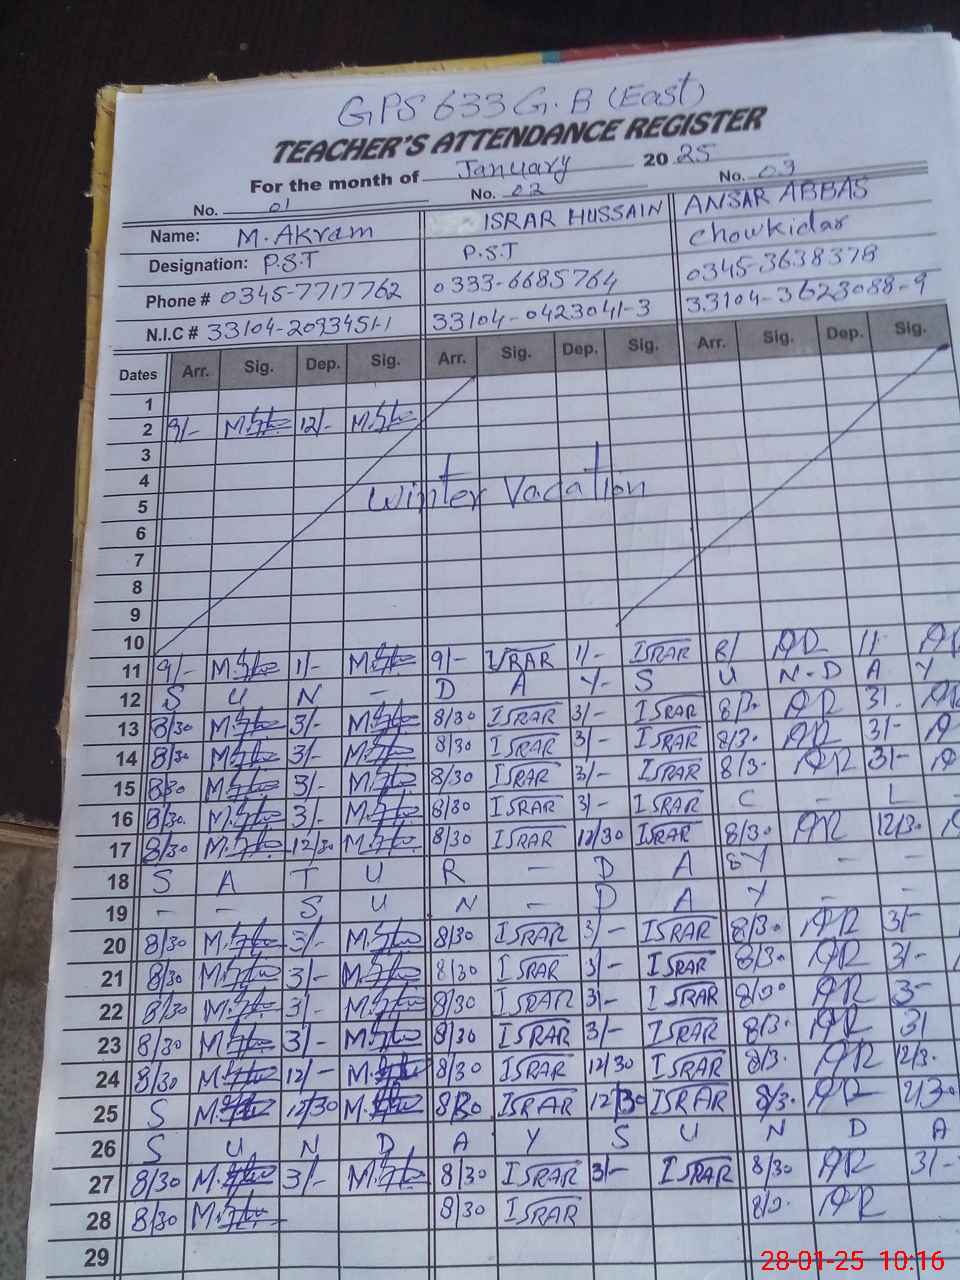 GPS 633 G.B (East)
TEACHER'S ATTENDANCE REGISTER
For the month of January 2025
No. 01 No. 02 No. 03
Name: M. Akram ISRAR HUSSAIN ANSAR ABBAS
Designation: P.S.T P.S.T Chowkidar
Phone # 0345-7717762 0333-6685764 0345-3638378
N.I.C # 33104-2093451-1 33104-0423041-3 33104-3623088-9
Dates Arr. Sig. Dep. Sig. Arr. Sig. Dep. Sig. Arr. Sig. Dep. Sig.
1
2 9/- 12/-
3
4
Winter Vacation
5
6
7
8
9
10
11 9/- 1/- 9/- ISRAR 1/- ISRAR 8/ AR 1/- AR
12 S U N - D A Y - S U N - D A Y
13 8/30 3/- 8/30 ISRAR 3/- ISRAR 8/3. AR 3/.
14 8/30 3/- 8/30 ISRAR 3/- ISRAR 8/3. AR 3/-
15 8/30 3/- 8/30 ISRAR 3/- ISRAR 8/3. AR 3/-
16 8/30. 3/- 8/30 ISRAR 3/- ISRAR C - L -
17 8/30 12/30 8/30 ISRAR 12/30 ISRAR 8/30 AR 12/3.
18 S A T U R - D A Y - -
19 - - S U N - D A Y - -
20 8/30 3/- 8/30 ISRAR 3/- ISRAR 8/30 AR 3/-
21 8/30 3/- 8/30 ISRAR 3/- ISRAR 8/30 AR 3/-
22 8/30 3/- 8/30 ISRAR 3/- ISRAR 8/30 AR 3-
23 8/30 3/- 8/30 ISRAR 3/- ISRAR 8/3. AR 3/
24 8/30 12/- 8/30 ISRAR 12/30 ISRAR 8/3. AR 12/3.
25 S 12/30 8/30 ISRAR 12/30 ISRAR 8/3. AR
26 S U N D A Y S U N D A
27 8/30 3/- 8/30 ISRAR 3/- ISRAR 8/30 AR 3/-
28 8/30 8/30 ISRAR AR
29
28-01-25 10:16